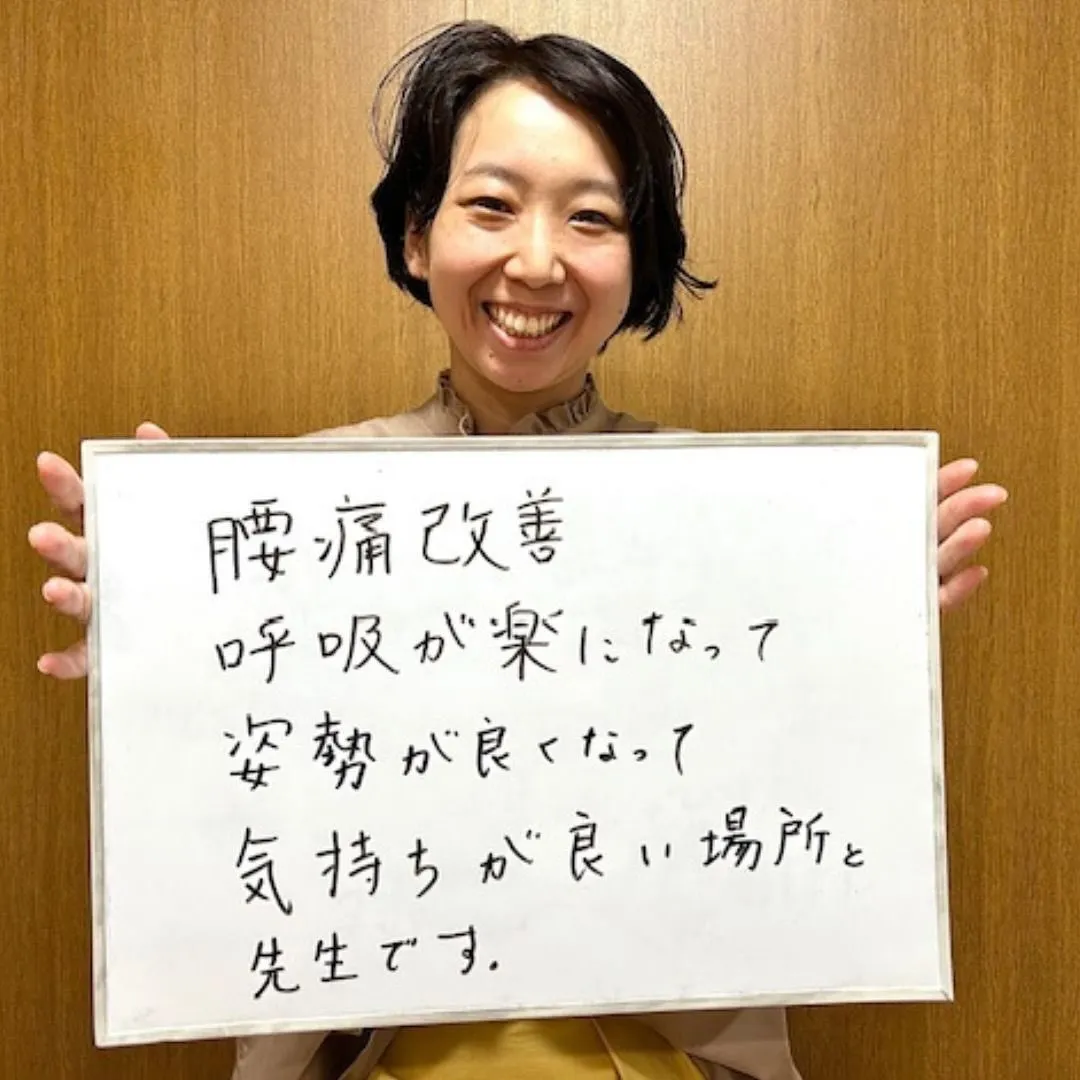 腰痛改善
呼吸が楽になって
姿勢が良くなって
気持ちが良い場所と
先生です.